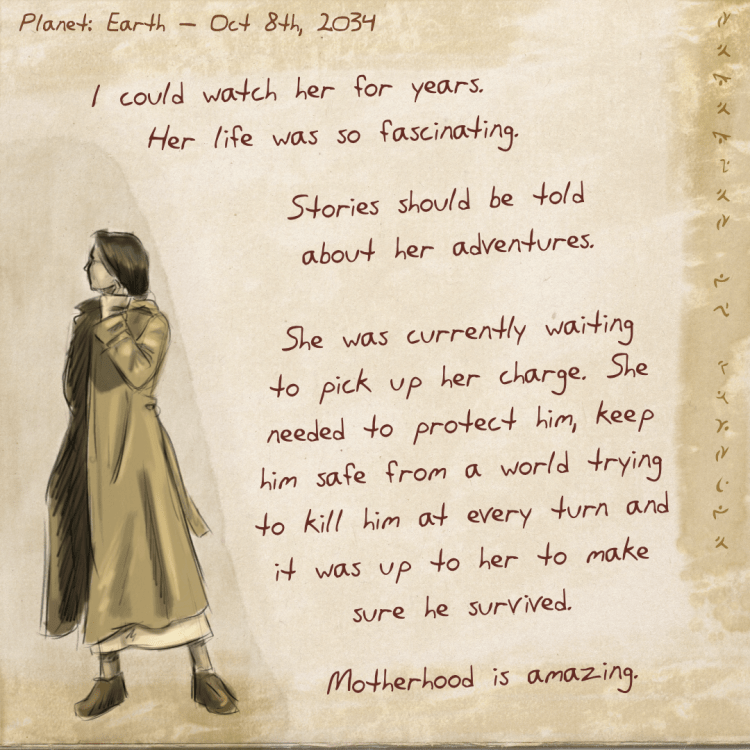 Planet: Earth – Oct 8th, 2034
I could watch her for years.
Her life was so fascinating.
Stories should be told
about her adventures.
She was currently waiting
to pick up her charge. She
needed to protect him, keep
him safe from a world trying
to kill him at every turn and
it was up to her to make
sure he survived.
Motherhood is amazing.